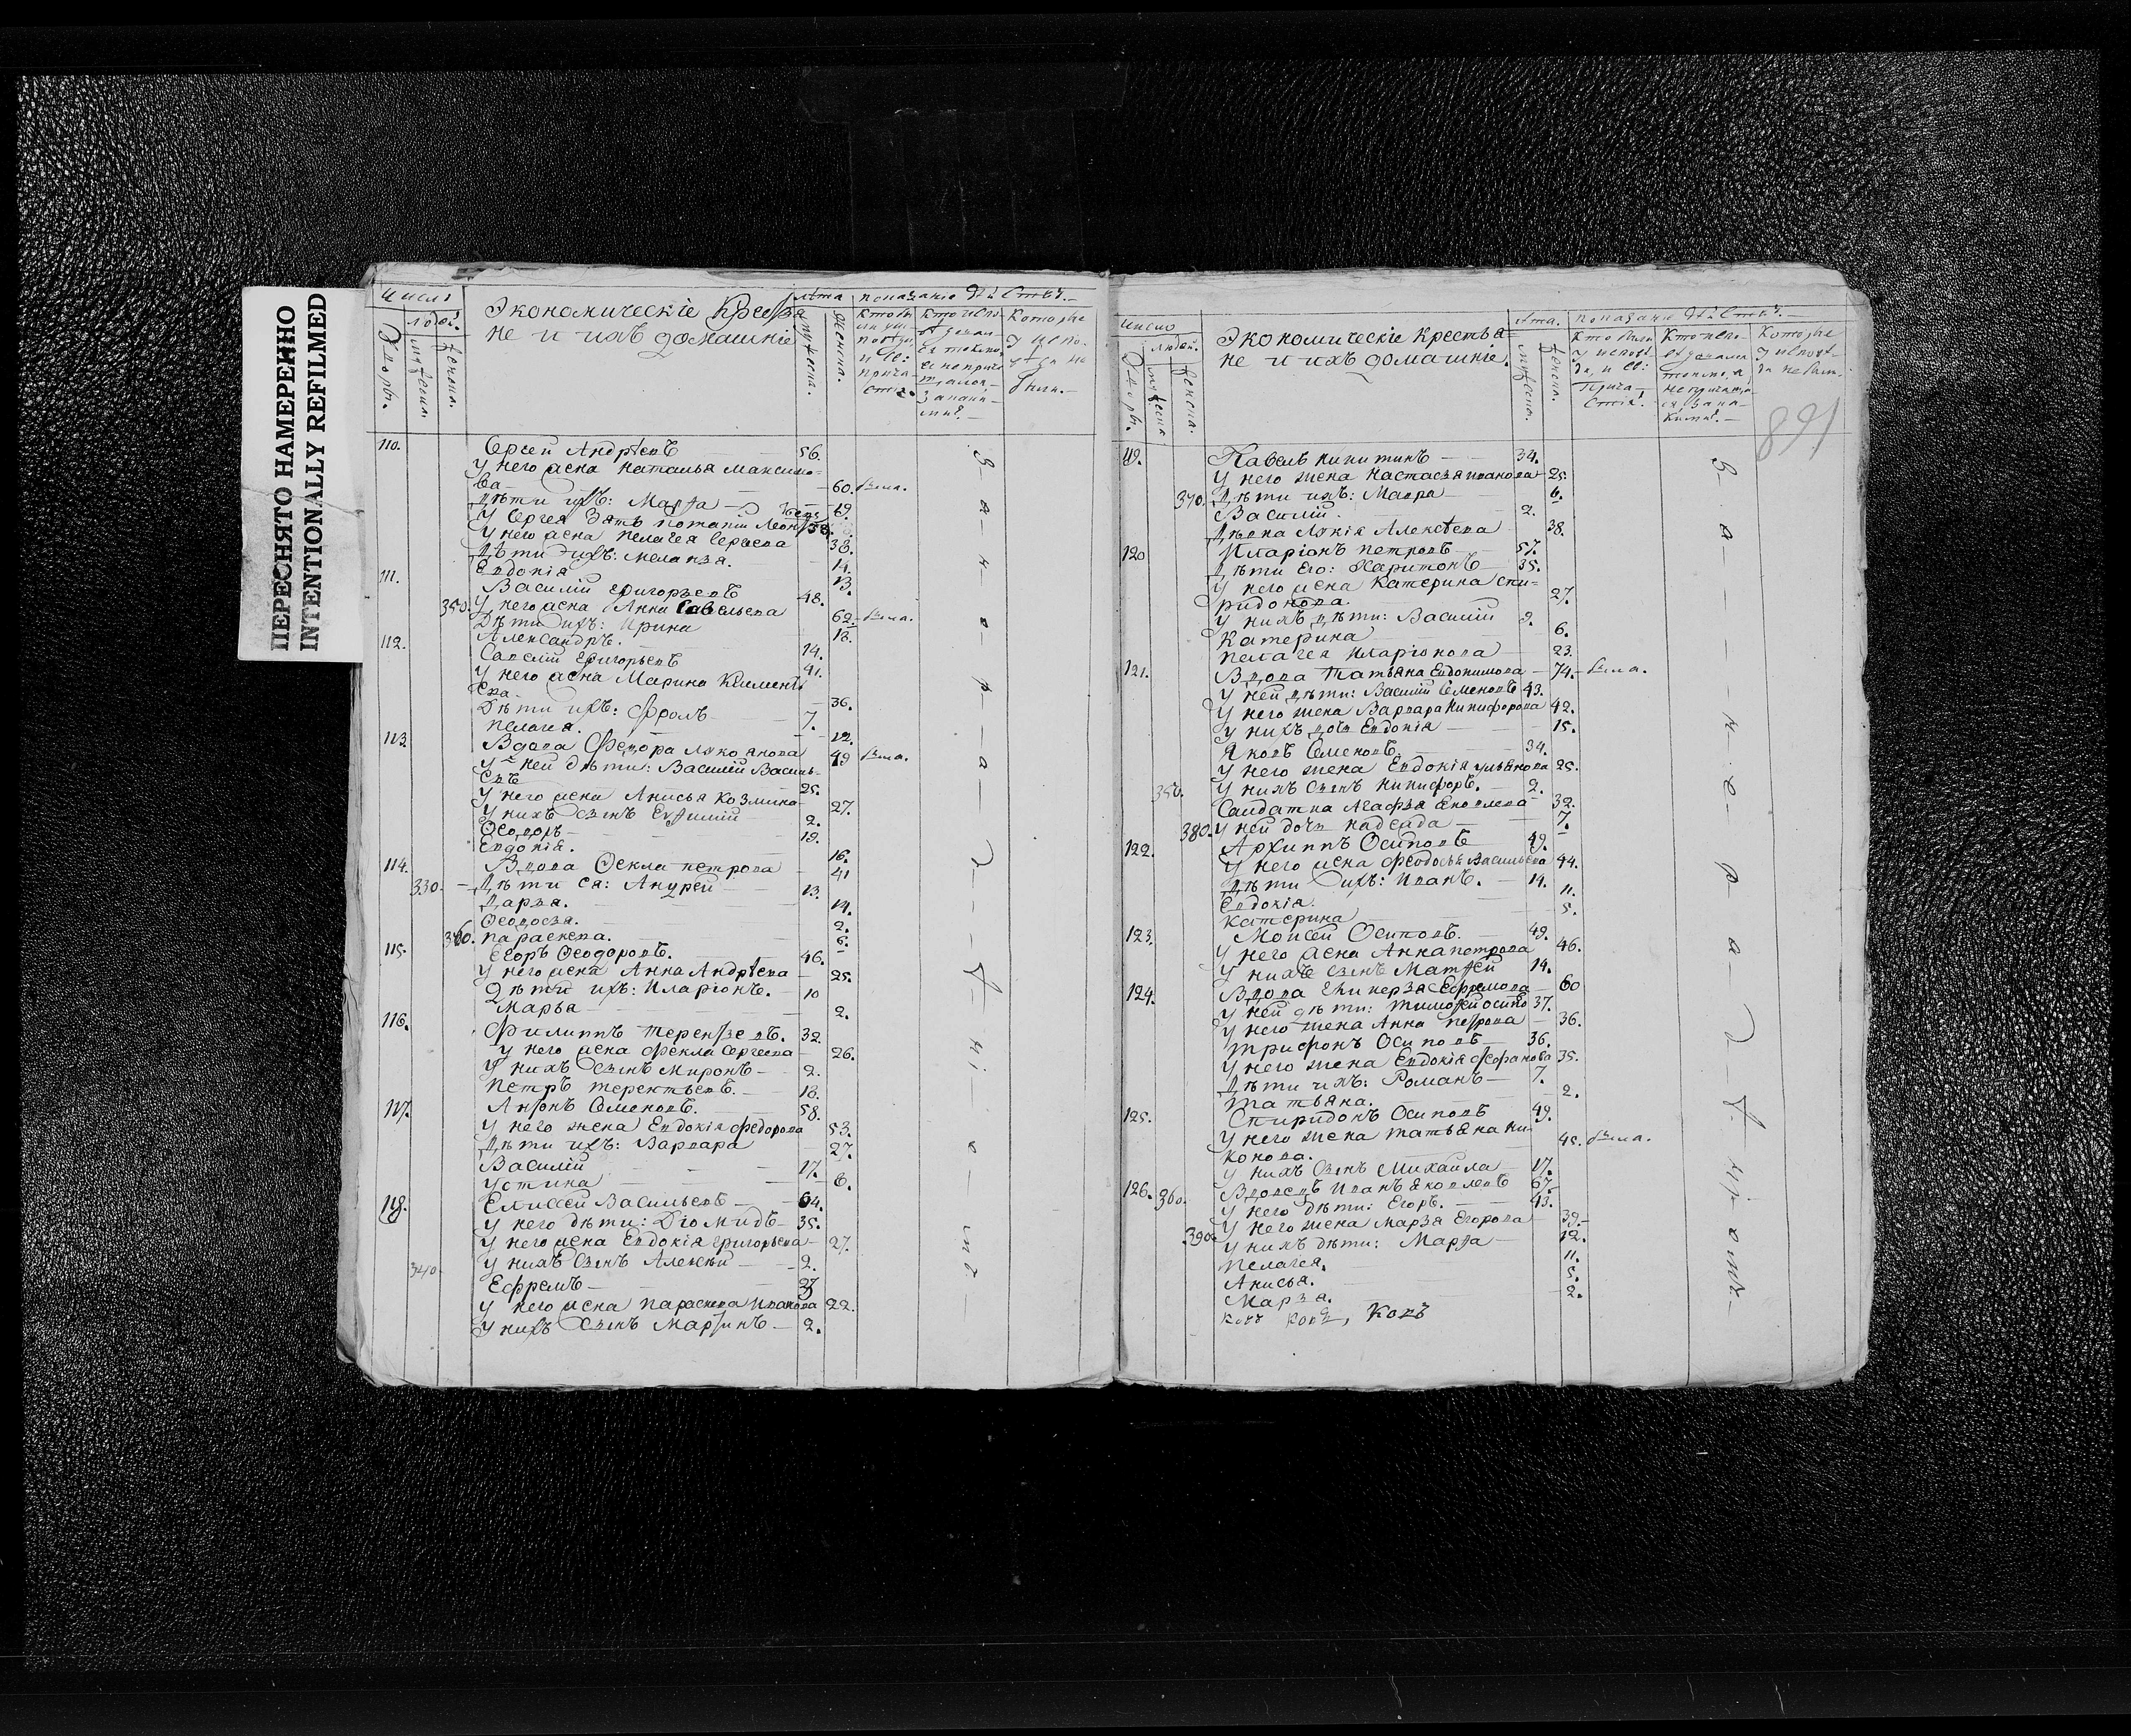 ПЕРЕСНЯТО НАМЕРЕННО
INTENTIONALLY REFILMED
Число
людей.
Дворы.
мужеска.
женска.
Экономическіе Крестья
не и ихъ домашніе
Лѣта
мужеска.
женска.
показаніе Дѣйствъ.
110. Сергей Андрѣевъ 56.
У него жена Наталья Максимо=
ва 60. была.
Дѣти ихъ: Марѳа 19.
У Сергея Зять потапъ Леонтьевъ 38.
У него жена Пелагея Сергѣева 38.
Дѣти ихъ: меланья. 14.
Евдокія 13.
111. Василій григорьевъ 48.
350. У него жена Анна Савельева 62. была.
Дѣти ихъ: Ирина 18.
Александръ. 14.
112. Савелій григорьевъ 41.
У него жена Марина Климентье
ева 36.
Дѣти ихъ: Фролъ 7.
Пелагея. 12.
113. Вдова Федора Лукоянова 49 была.
У ней дѣти: Василій Василь-
евъ 25.
У него жена Анисья Козмина 27.
У нихъ сынъ Евфимій 2.
Ѳеодоръ 19.
Евдокія. 16.
114. Вдова Ѳекла петрова 41
330. Дѣти ея: Андрей 13.
Дарья. 14.
Ѳеодосья. 2.
360. параскева. 6.
115. Егоръ Ѳеодоровъ. 46.
У него жена Анна Андрѣева 25.
Дѣти ихъ: Иларіонъ. 10
Марья 2.
116. Филиппъ терентьевъ. 32.
У него жена Фекла Сергеева 26.
У нихъ сынъ Миронъ 2.
Петръ терентьевъ. 18.
117. Антонъ Семеновъ. 58.
У него жена Евдокія Федорова 53.
Дѣти ихъ: Варвара 27.
Василій 17.
Устина 6.
118. Елисей Васильевъ 64.
У него дѣти: Діомидъ 35.
У него жена Евдокія григорьева 27.
340. У нихъ сынъ Алексѣй 2.
Ефремъ
У него жена параскева Иванова 22.
У нихъ сынъ Мартинъ 2.
Число
людей.
Дворы.
мужеска
женска.
Экономическіе Крестья
не и ихъ домашніе.
Лѣта.
мужеска.
женска.
показаніе Дѣйствъ.
119. Павелъ никитинъ 34.
У него жена настасья иванова 25.
370. Дѣти ихъ: Мавра 6.
Василій. 2.
Дѣвка Лукія Алексѣева 38.
120 Иларіонъ петровъ 57.
Дѣти его: Харитонъ 35.
У него жена Катерина Спи=
ридонова 27.
У нихъ дѣти: Василій 9.
Катерина 6.
Пелагея Иларіонова 23.
121. Вдова Татьяна Евдокимова 74. была.
У ней дѣти: Василій Семеновъ 43.
У него жена Варвара Никифорова 42.
У нихъ дочь Евдокія 15.
Яковъ Семеновъ. 34.
У него жена Евдокія ульянова 25.
350. У нихъ сынъ Никифоръ. 2.
Салдатка Агафья Яковлева 32.
380. У ней дочь надежда 7.
122. Архиппъ Осиповъ 49.
У него жена Феодосья Васильева 44.
Дѣти ихъ: Иванъ. 14.
Евдокія. 11.
Катерина 5.
123. Моисей Осиповъ. 49.
У него жена Анна петрова 46.
У нихъ сынъ Матѳей 14.
124. Вдова Гликерья Ефремова 60
У ней дѣти: Тимоѳей осипо 37.
У него жена Анна петрова 36.
Трифонъ Осиповъ 36.
У него жена Евдокія Феофанова 35.
Дѣти ихъ: Романъ 7.
Татьяна. 2.
125. Спиридонъ Осиповъ 49.
У него жена татьяна ни-
конова. 45. была.
У нихъ сынъ Михайла 17.
126. 360. Вдовецъ Иванъ Яковлевъ 67.
У него дѣти: Егоръ. 43.
У него жена Марья Егорова 39.
390. У нихъ дѣти: Марѳа 12.
Пелагея. 11.
Анисья. 5.
Марья. 2.